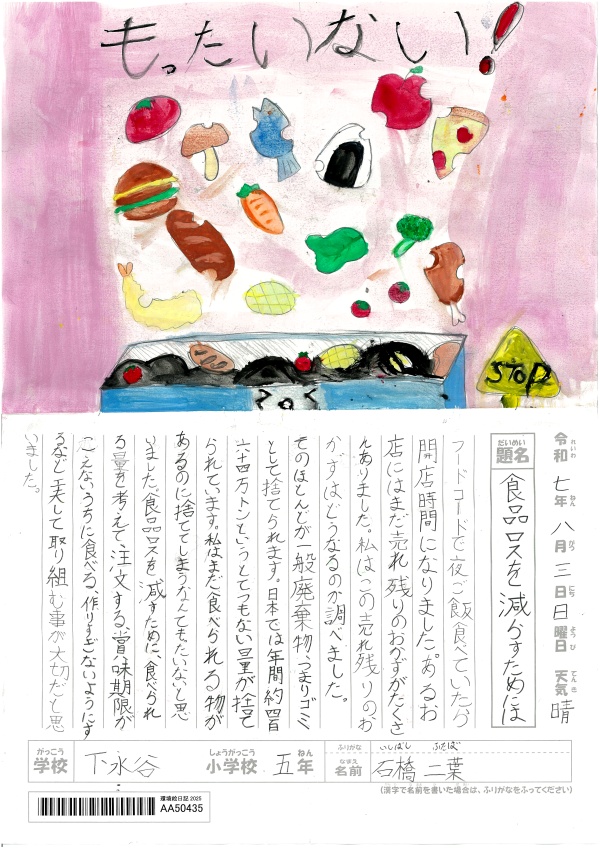 もったいない!
STOP
令和七年八月三日日曜日 天気晴
れいわ ねん がつ にち ようび てんき
だいめい
題名
食品ロスを減らすためには
フードコートで夜ご飯食べていたら
閉店時間になりました。あるお
店にはまだ売れ残りのおかずがたくさ
んありました。私はこの売れ残りのお
かずはどうなるのか調べました。
そのほとんどが一般廃棄物、つまりゴミ
として捨てられます。日本では年間約四百
六十四万トンというとてつもない量が捨て
られています。私はまだ食べられる物が
あるのに捨ててしまうなんてもったいないと思
いました。食品ロスを減すために、食べられ
る量を考えて、注文する、賞味期限が
こえないうちに食べる、作りすぎないようにす
るなど工夫して取り組む事が大切だと思
いました。
がっこう しょうがっこう ねん ふりがな いしばし ふたば
学校 下永谷 小学校 五年 なまえ 名前 石橋二葉
(漢字で名前を書いた場合は、ふりがなをふってください)
環境絵日記 2025
AA50435